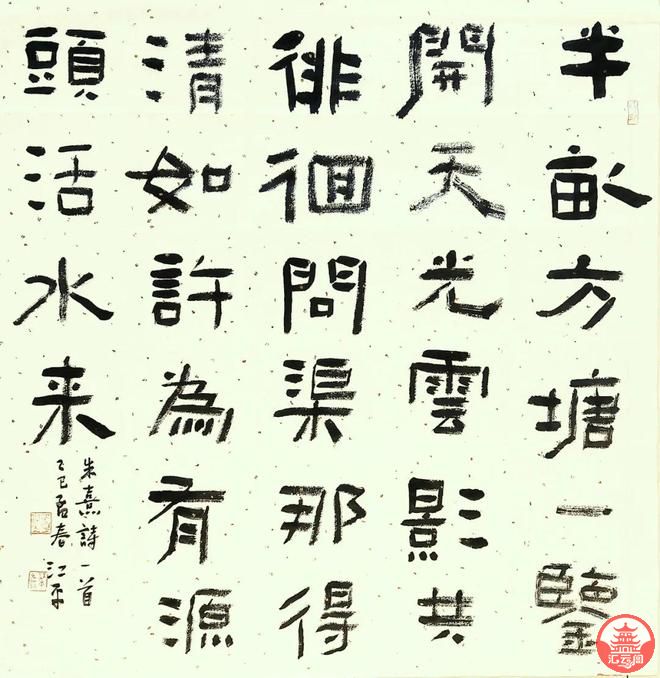 半畝方塘一鑒
開天光雲影共
徘徊問渠那得
清如許為有源
頭活水来
朱熹詩一首
乙巳孟春 江平
汇云阁